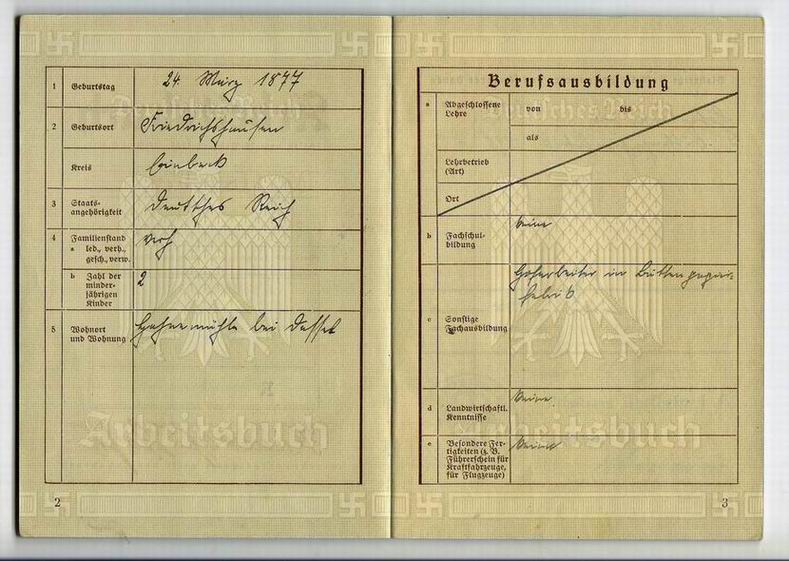 1 Geburtstag 24. März 1877
2 Geburtsort Friedrichshausen
Kreis Einbeck
3 Staats-
angehörigkeit Deutsches Reich
4 Familienstand verh
a led., verh.,
gesch., verw.
b Zahl der
minder-
jährigen
Kinder 2
5 Wohnort
und Wohnung Hahnemühle bei Dassel
Arbeitsbuch
2
Berufsausbildung
a Abgeschlossene
Lehre
von bis
als
Lehrbetrieb
(Art)
Ort
b Fachschul-
bildung keine
c Sonstige
Fachausbildung
in Büttenpapier-
fabrik
d Landwirtschaftl.
Kenntnisse keine
e Besondere Fer-
tigkeiten (z. B.
Führerschein für
Kraftfahrzeuge,
für Flugzeuge) keine
Deutsches Reich
Arbeitsbuch
3